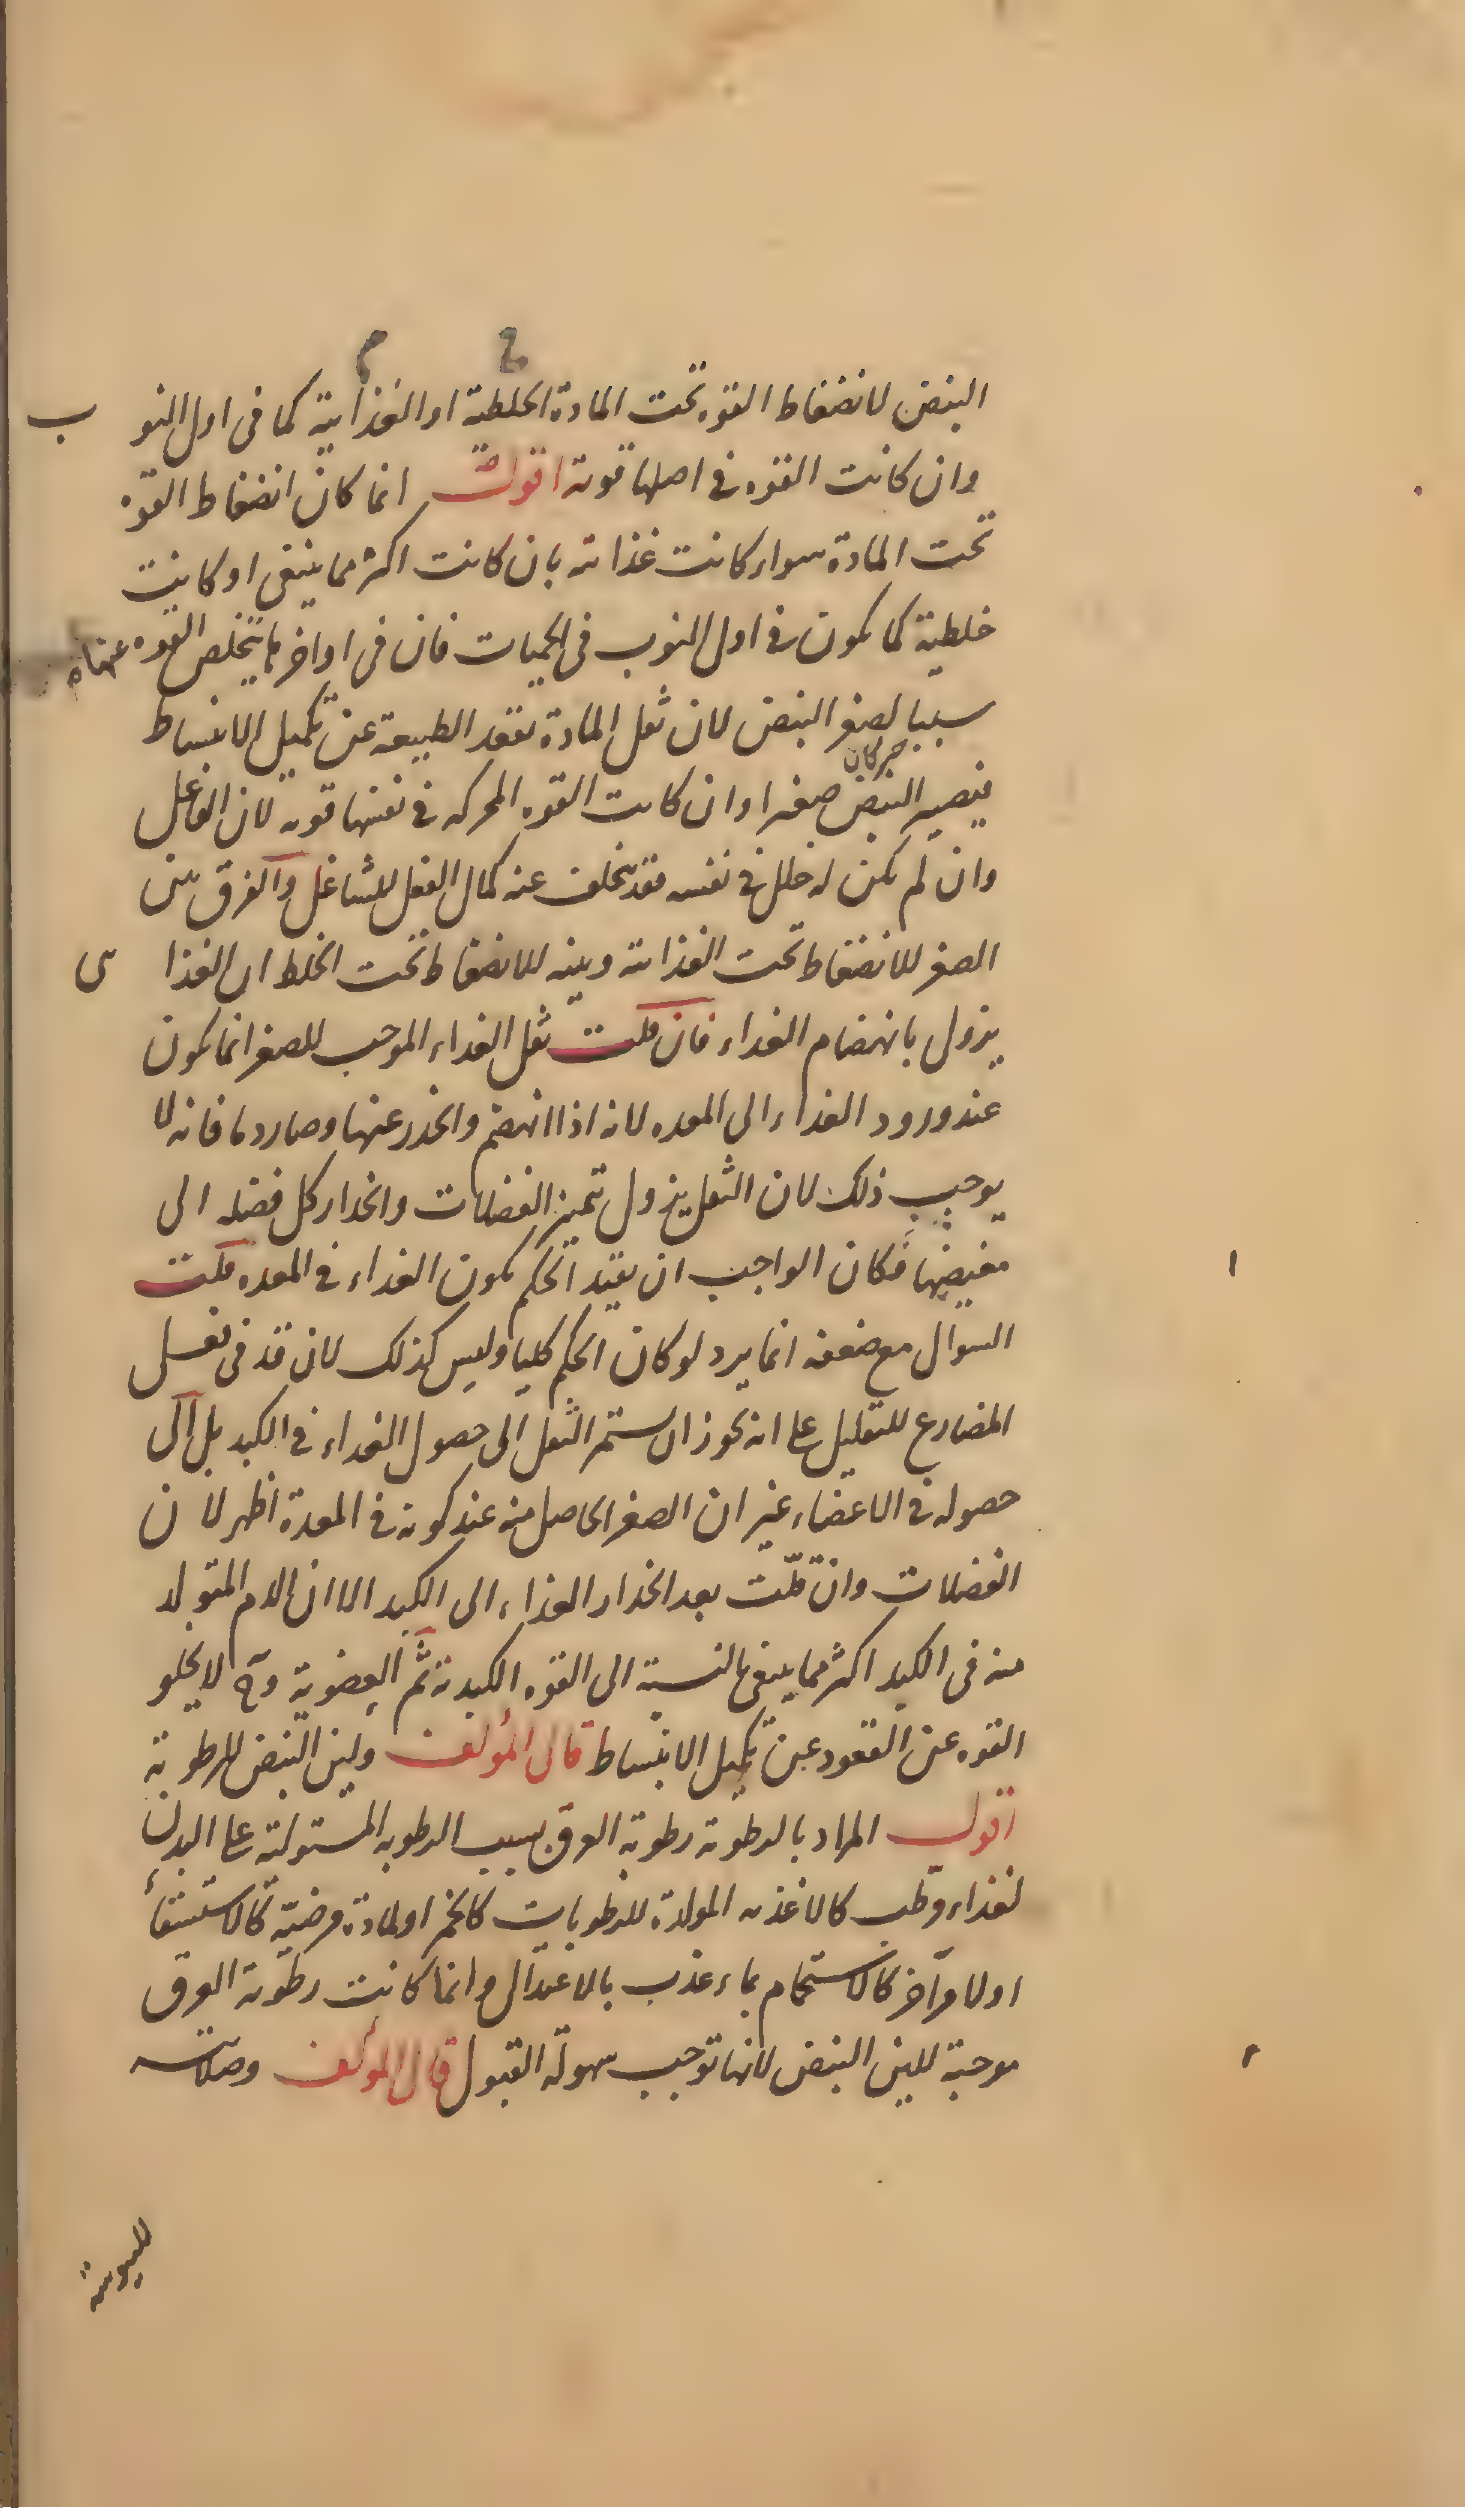 النبض لانضغاط القوه تحت المادة الخلطية او الغذائية كما فى اول النوب
وان كانت القوه فى اصلها قوية اقول انما كان انضغاط القوة
تحت المادة سواء كانت غذائية بان كانت اكثر مما ينبغى او كانت
خلطية كما يكون فى اول النوب فى الحميات فان فى اواخرها يتخلص القوه عنها
سببا لصغر النبض لان ثقل المادة يقعد الطبيعة عن تكميل الانبساط
فيصير النبض صغيرا وان كانت القوه المحركه فى نفسها قوية لان الفاعل
وان لم يكن له خلل فى نفسه فقد يتخلف عنه كمال الفعل للشاغل والفرق بين
الصغر للانضغاط تحت الغذائية وبينه للانضغاط تحت الخلط ان الغذا ئى
يزول بانهضام الغداء فان قلت ثقل الغداء الموجب للصغر انما يكون
عند ورود الغداء الى المعده لانه اذا انهضم وانحدر عنها وصار دما فانه لا
يوجب ذلك لان الثقل يزول بتميز الفضلات وانحدار كل فضله الى
مغيضها فكان الواجب ان يقيد الحكم بكون الغداء فى المعده قلت
السوال مع ضعفه انما يرد لو كان الحكم كليا وليس كذلك لان قد فى
المضارع للتقليل على انه يجوز ان يستمر الثقل الى حصول الغداء فى الكبد بل الى
حصوله فى الاعضاء غير ان الصغر الحاصل منه عند كونه فى المعدة اظهر لان
الفضلات وان قلّت بعد انحدار الغذاء الى الكبد الا ان الدم المتولد
منه فى الكبد اكثر مما ينبغى بالنسبة الى القوه الكبدية ثم العضوية وح لا يخلو
القوه عن القعود عن تكميل الانبساط قال المؤلف ولين النبض للرطوبة
اقول المراد بالرطوبة رطوبة العرق بسبب الرطوبه المستولية على البدن
لغداء رطب كالاغذيه المولدة للرطوبات كالخمر او لمادة مرضية كالاستسقاء
اولا مر آخر كالاستحمام بماء عذب بالاعتدال وانما كانت رطوبة العرق
موجبة للين النبض لانها توجب سهولة القبول قال المؤلف وصلابته
لليبوسة